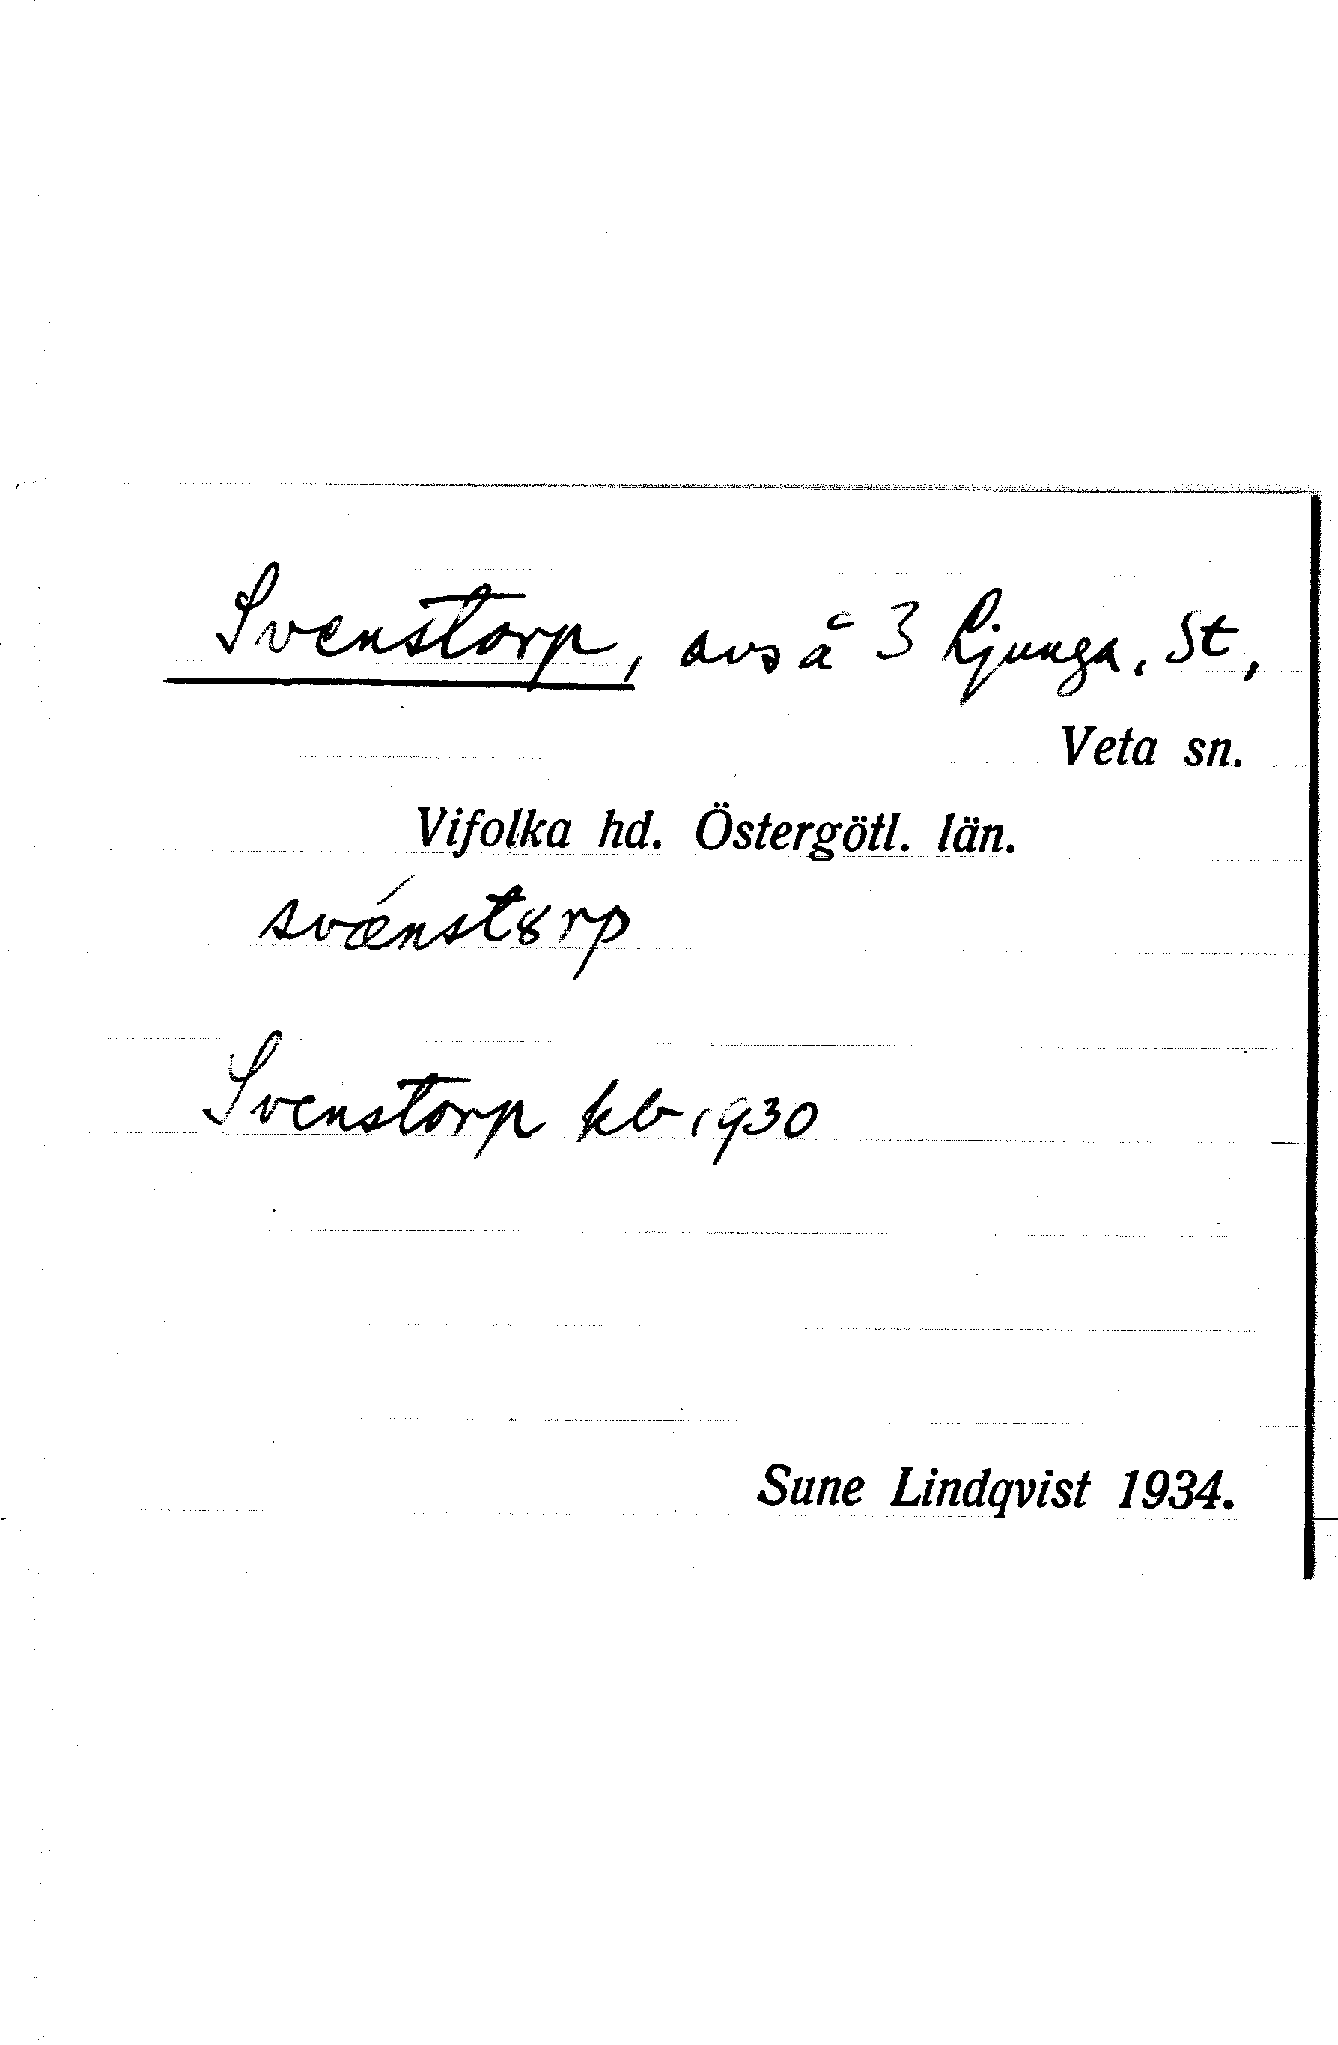 Svenstorp, avs å 3 Ljunga, St,
Veta sn.
Vifolka hd. Östergötl. län.
svænst8rp
Svenstorp kb 1930
Sune Lindqvist 1934.